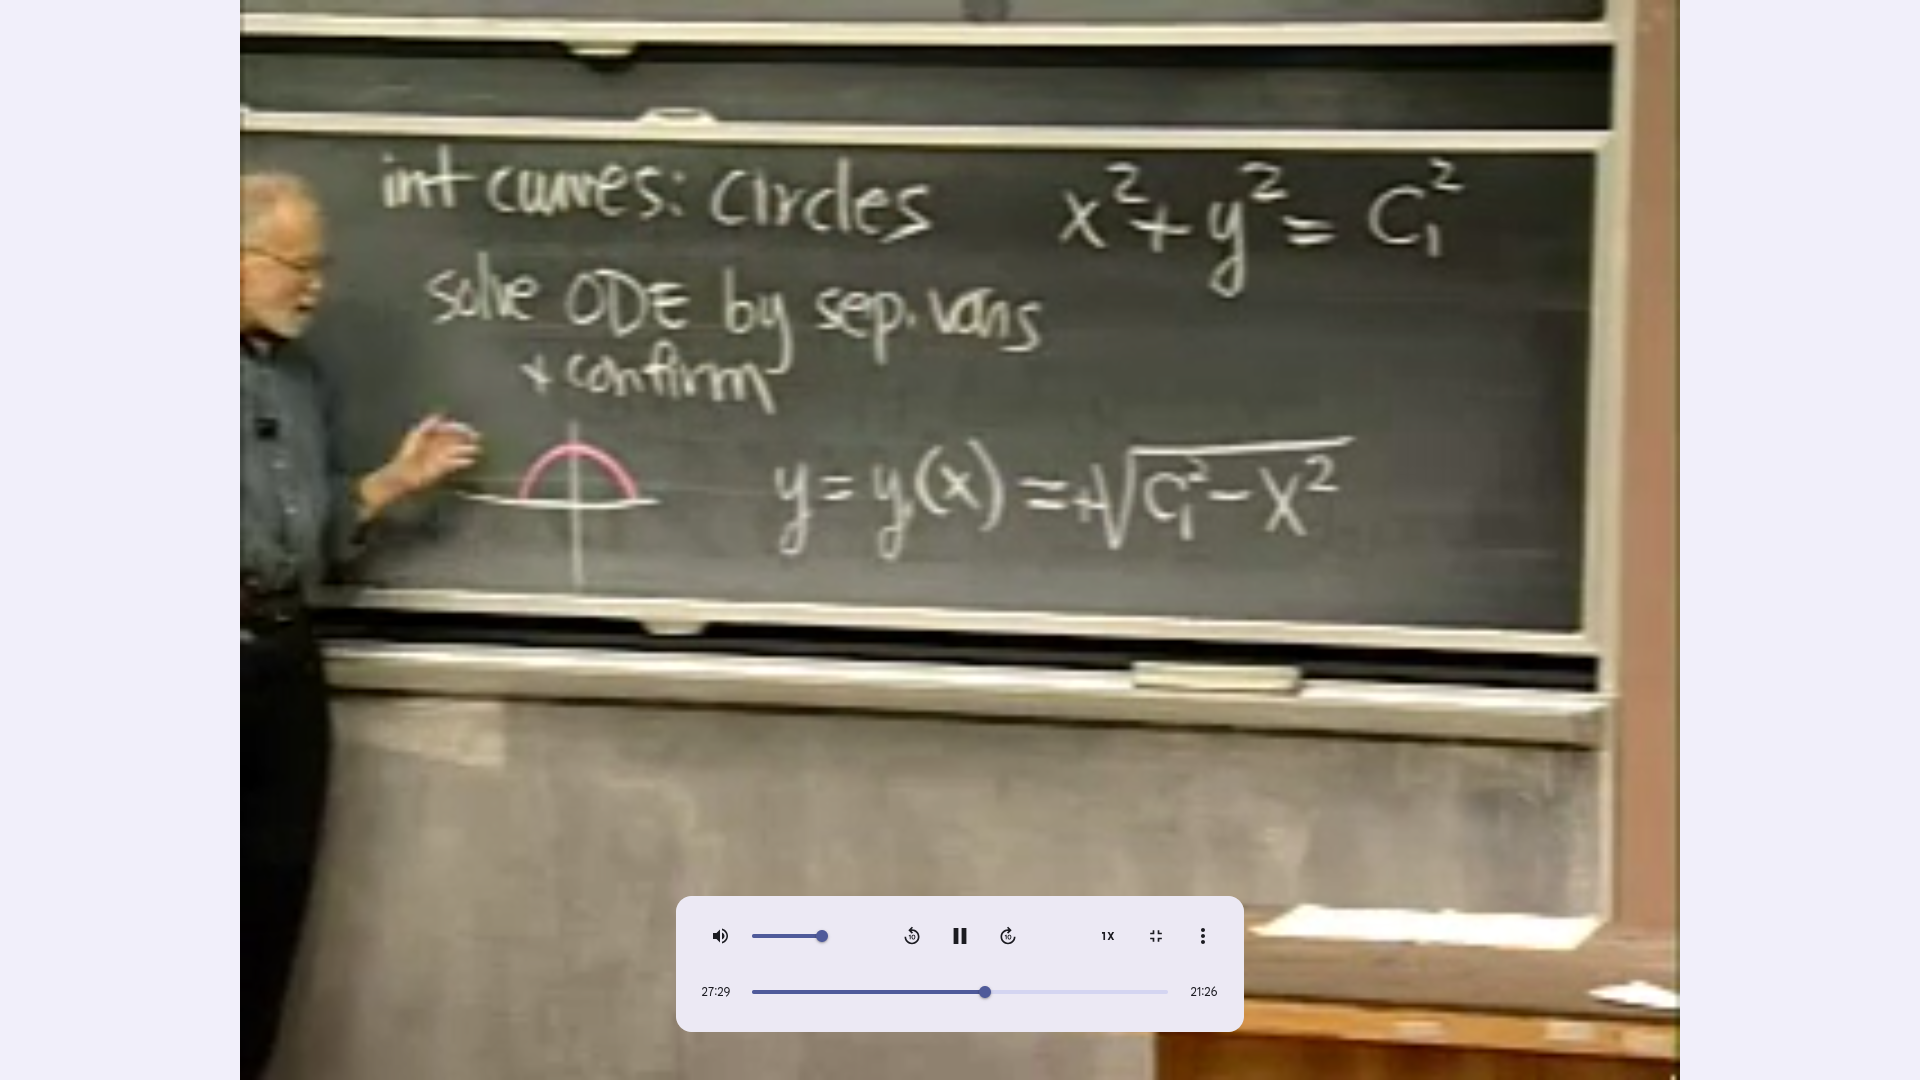 int curves: Circles x² + y² = C₁²
solve ODE by sep. vars
+ confirm
y = y₁(x) = +√(C₁² - x²)
10 10 1X
27:29 21:26